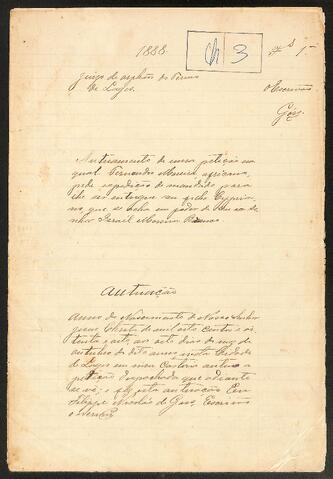 1888.
Ch 3
Juizo de orphãos do Termo
de Lages.
O Escrivão
Góss
Autuamento de uma petição na
qual Fernando Moreira, africano,
pede expedição de mandado para
lhe ser entregue seu filho Cypria-
no, que se acha em poder de
Israel Moreira
Autuação
Anno do Nascimento de Nosso Senhor
Jesus Christo de mil oito centos e oi-
tenta e oito, aos sete dias do mez de
outubro do dito anno nesta Cidade
de Lages em meu Cartorio autuo a
petição despachada que adiante
se vê; e fiz esta autuação Eu
Filippe Nicoláo de Góss, Escrivão
escrevi